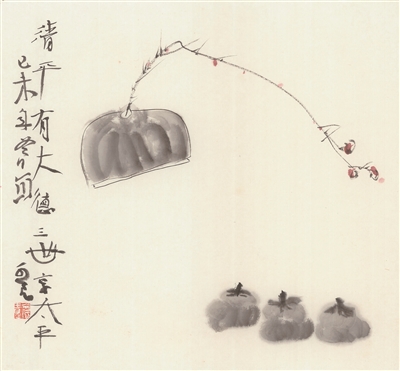 清平有大德三世享太平
己未年